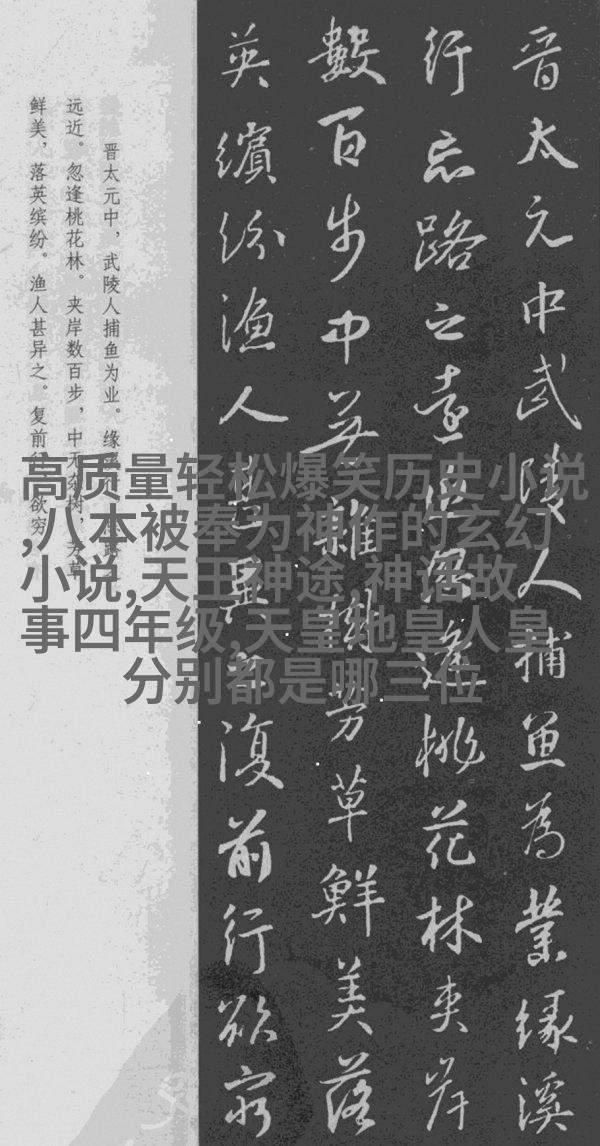 晋太元中武陵人捕魚為業缘溪
行忘路之遠近忽逢桃花林夾岸
數百步中無雜樹芳草鮮美落
英繽紛漁人甚異之復前行欲窮
晋太元中，武陵人捕鱼为业。缘溪行，忘路之
远近。忽逢桃花林。夹岸数百步，中无杂树，芳草
鲜美，落英缤纷。渔人甚异之。复前行，欲穷
高质量轻松爆笑历史小说
,八本被奉为神作的玄幻
小说,天王神途,神话故
事四年级,天皇地皇人皇
分别都是哪三位